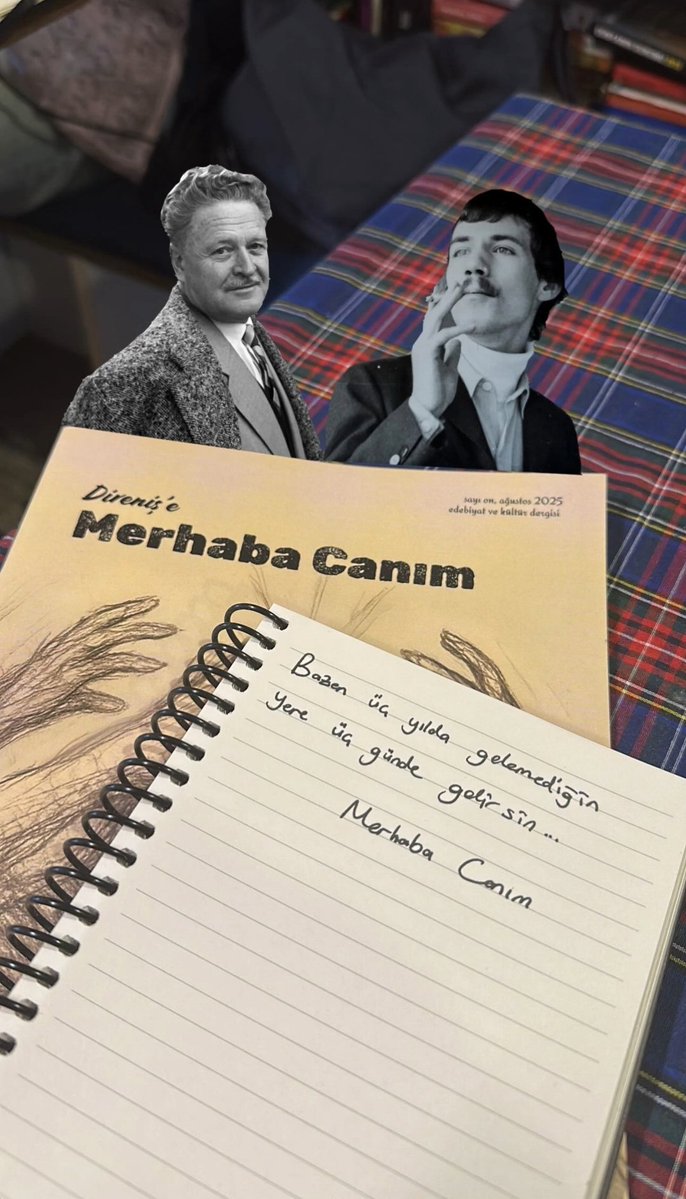 Direniş'e
Merhaba Canım
sayı on, ağustos 2025
edebiyat ve kültür dergisi
Bazen üç yılda gelemediğin
yere üç günde gelirsin...
Merhaba Canım